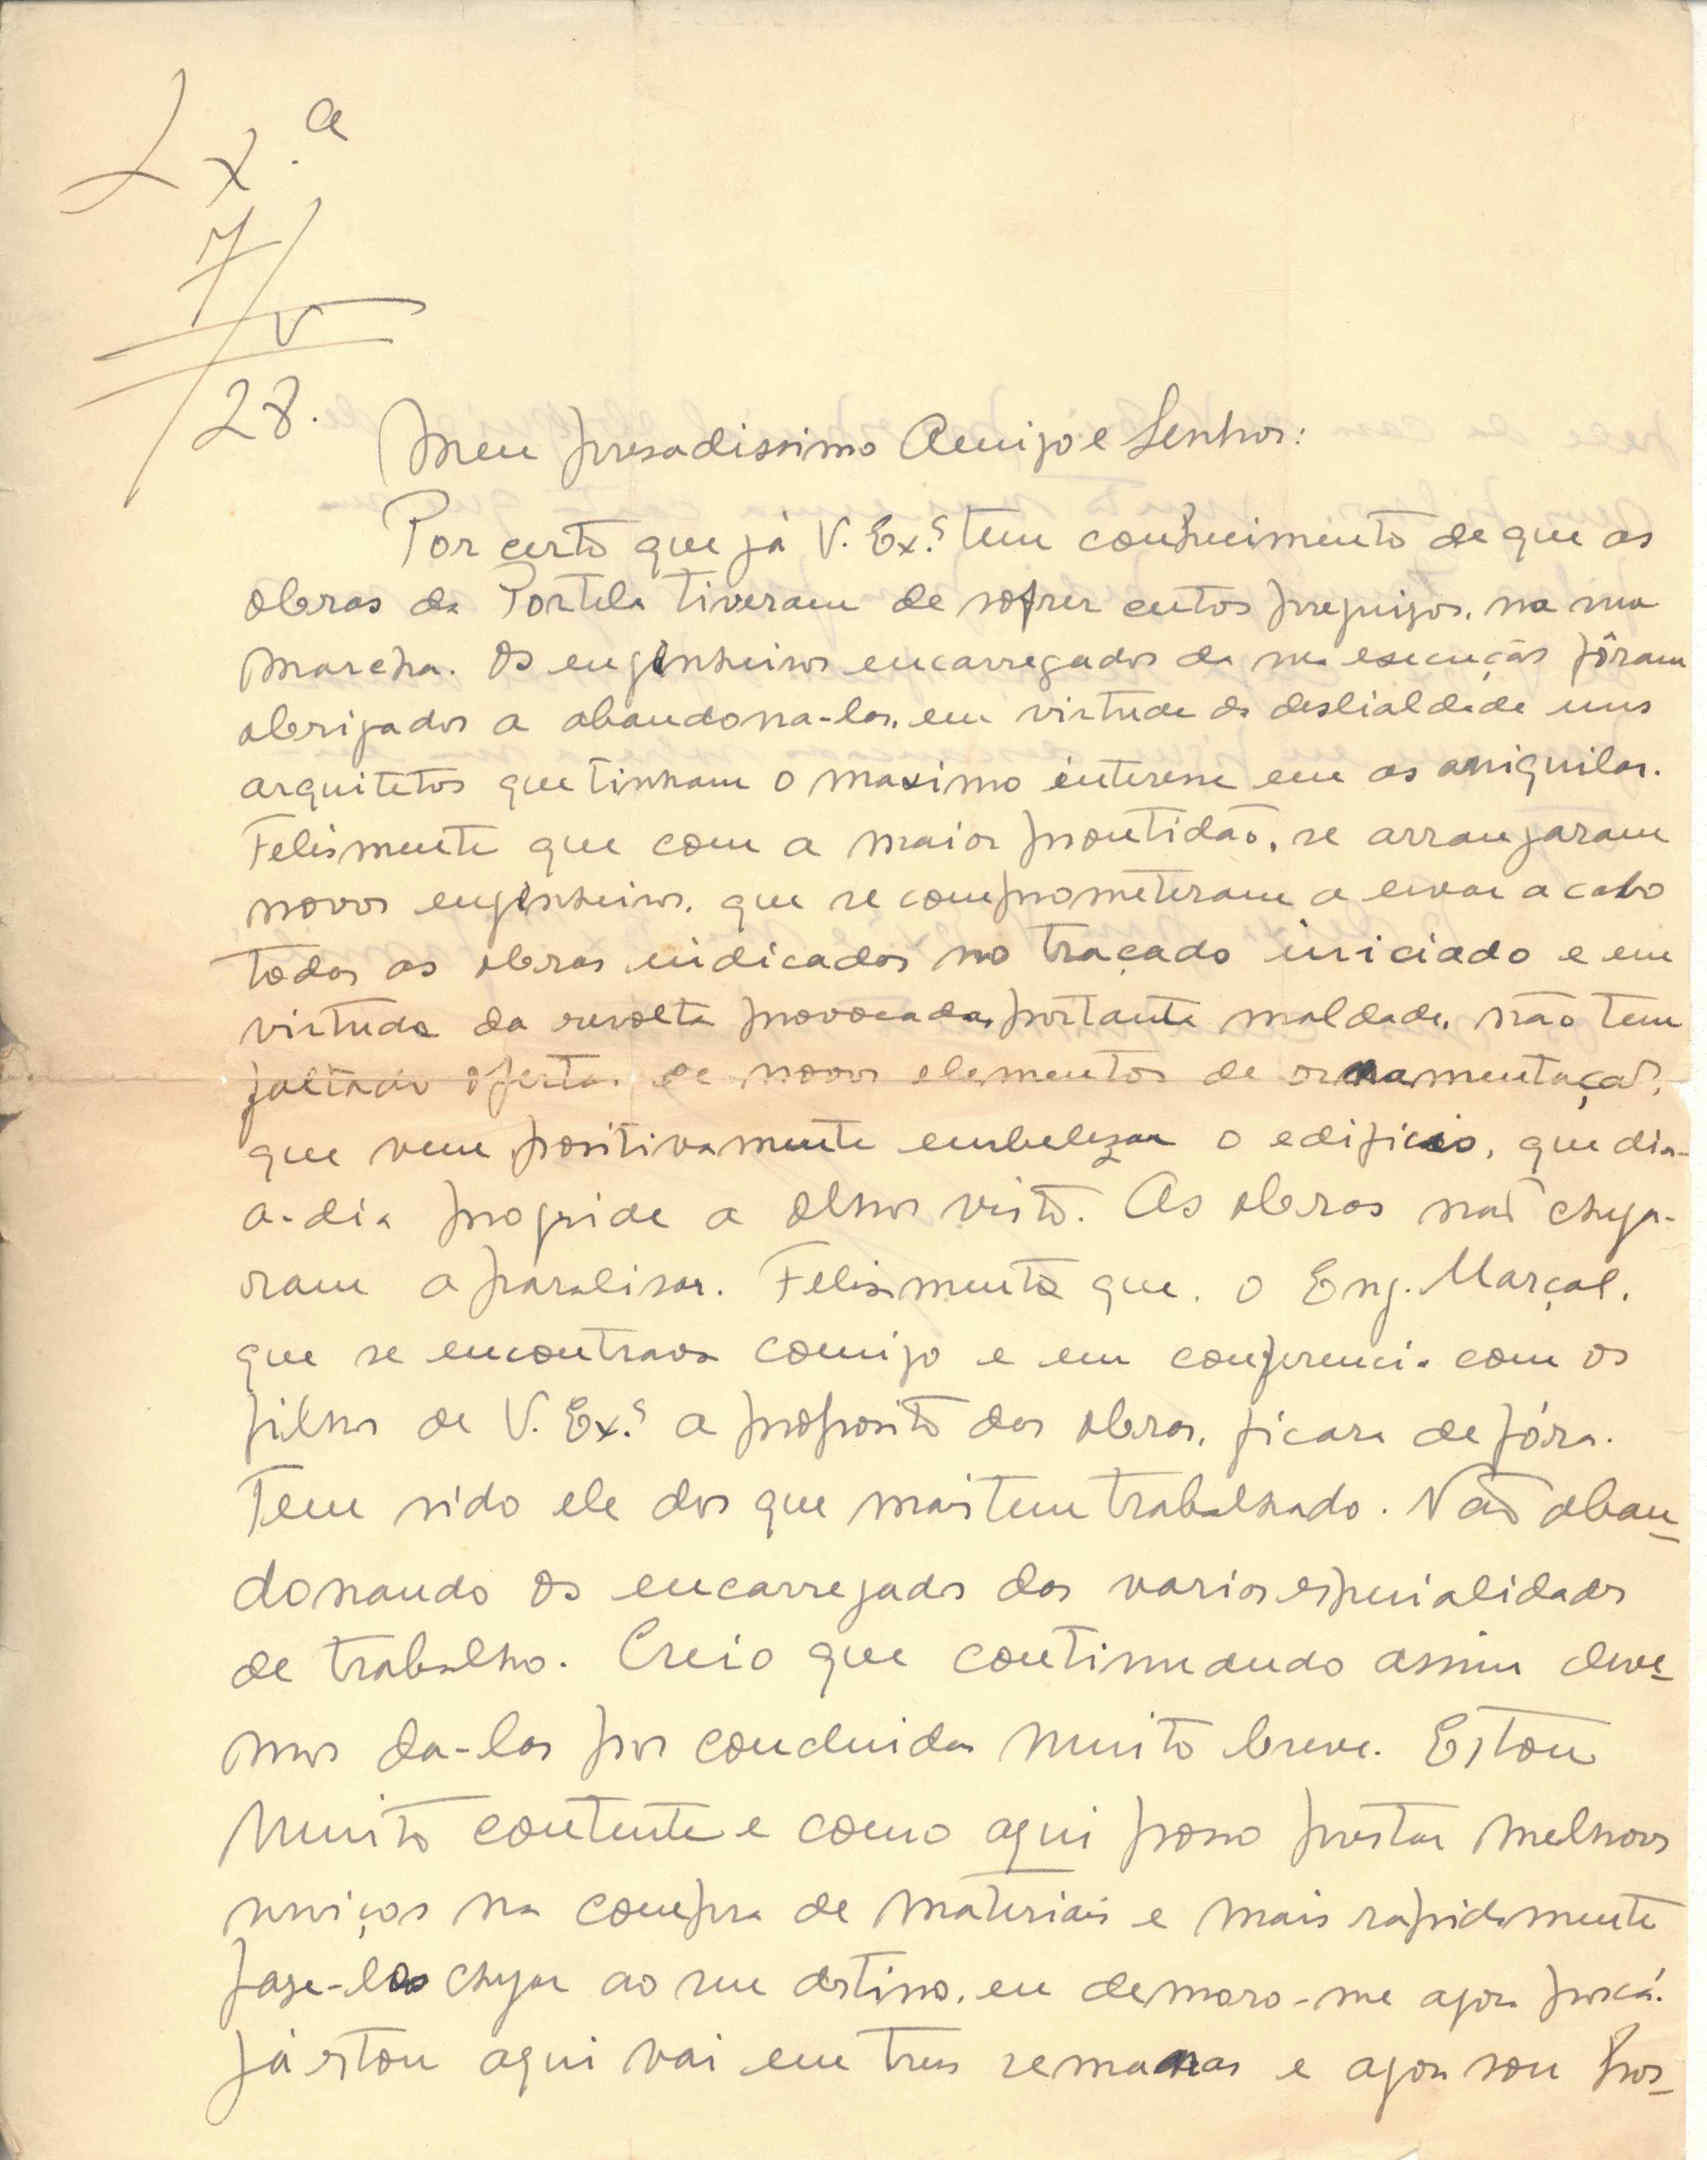 Lx.a
7
V
28.
Meu presadissimo Amigo e Senhor:
Por certo que já V. Ex.ª tem conhecimento de que as
obras da Portela tiveram de sofrer certos prejuizos, na sua
marcha. Os enginheiros encarregados da sua execução fôram
obrigados a abandona-las, em virtude da deslialdade uns
arquitetos que tinham o maximo interesse em as aniquilar.
Felismente que com a maior prontidão, se arranjaram
novos enginheiros, que se comprometeram a levar a cabo
todas as obras indicadas no traçado iniciado e em
virtude da revolta provocada, por tanta maldade, não tem
faltado ofertas de novos elementos de ornamentação,
que vem positivamente embelezar o edificio, que dia-
a-dia progride a olhos visto. As obras não chega-
ram a paralisar. Felismente que, o Eng. Marçal,
que se encontrava comigo e em conferencia com os
filhos de V. Ex.ª a proposito das obras, ficara de fóra.
Tem sido ele dos que mais tem trabalhado. Não aban-
donando os encarregados das varias especialidades
de trabalho. Creio que continuando assim deve-
mos da-las por concluidas muito breve. Estou
muito contente e como aqui posso prestar melhores
serviços na compra de materiais e mais rapidamente
faze-los chegar ao seu destino, eu demoro-me agora por cá.
Já estou aqui vai em tres semanas e agora sou hos-